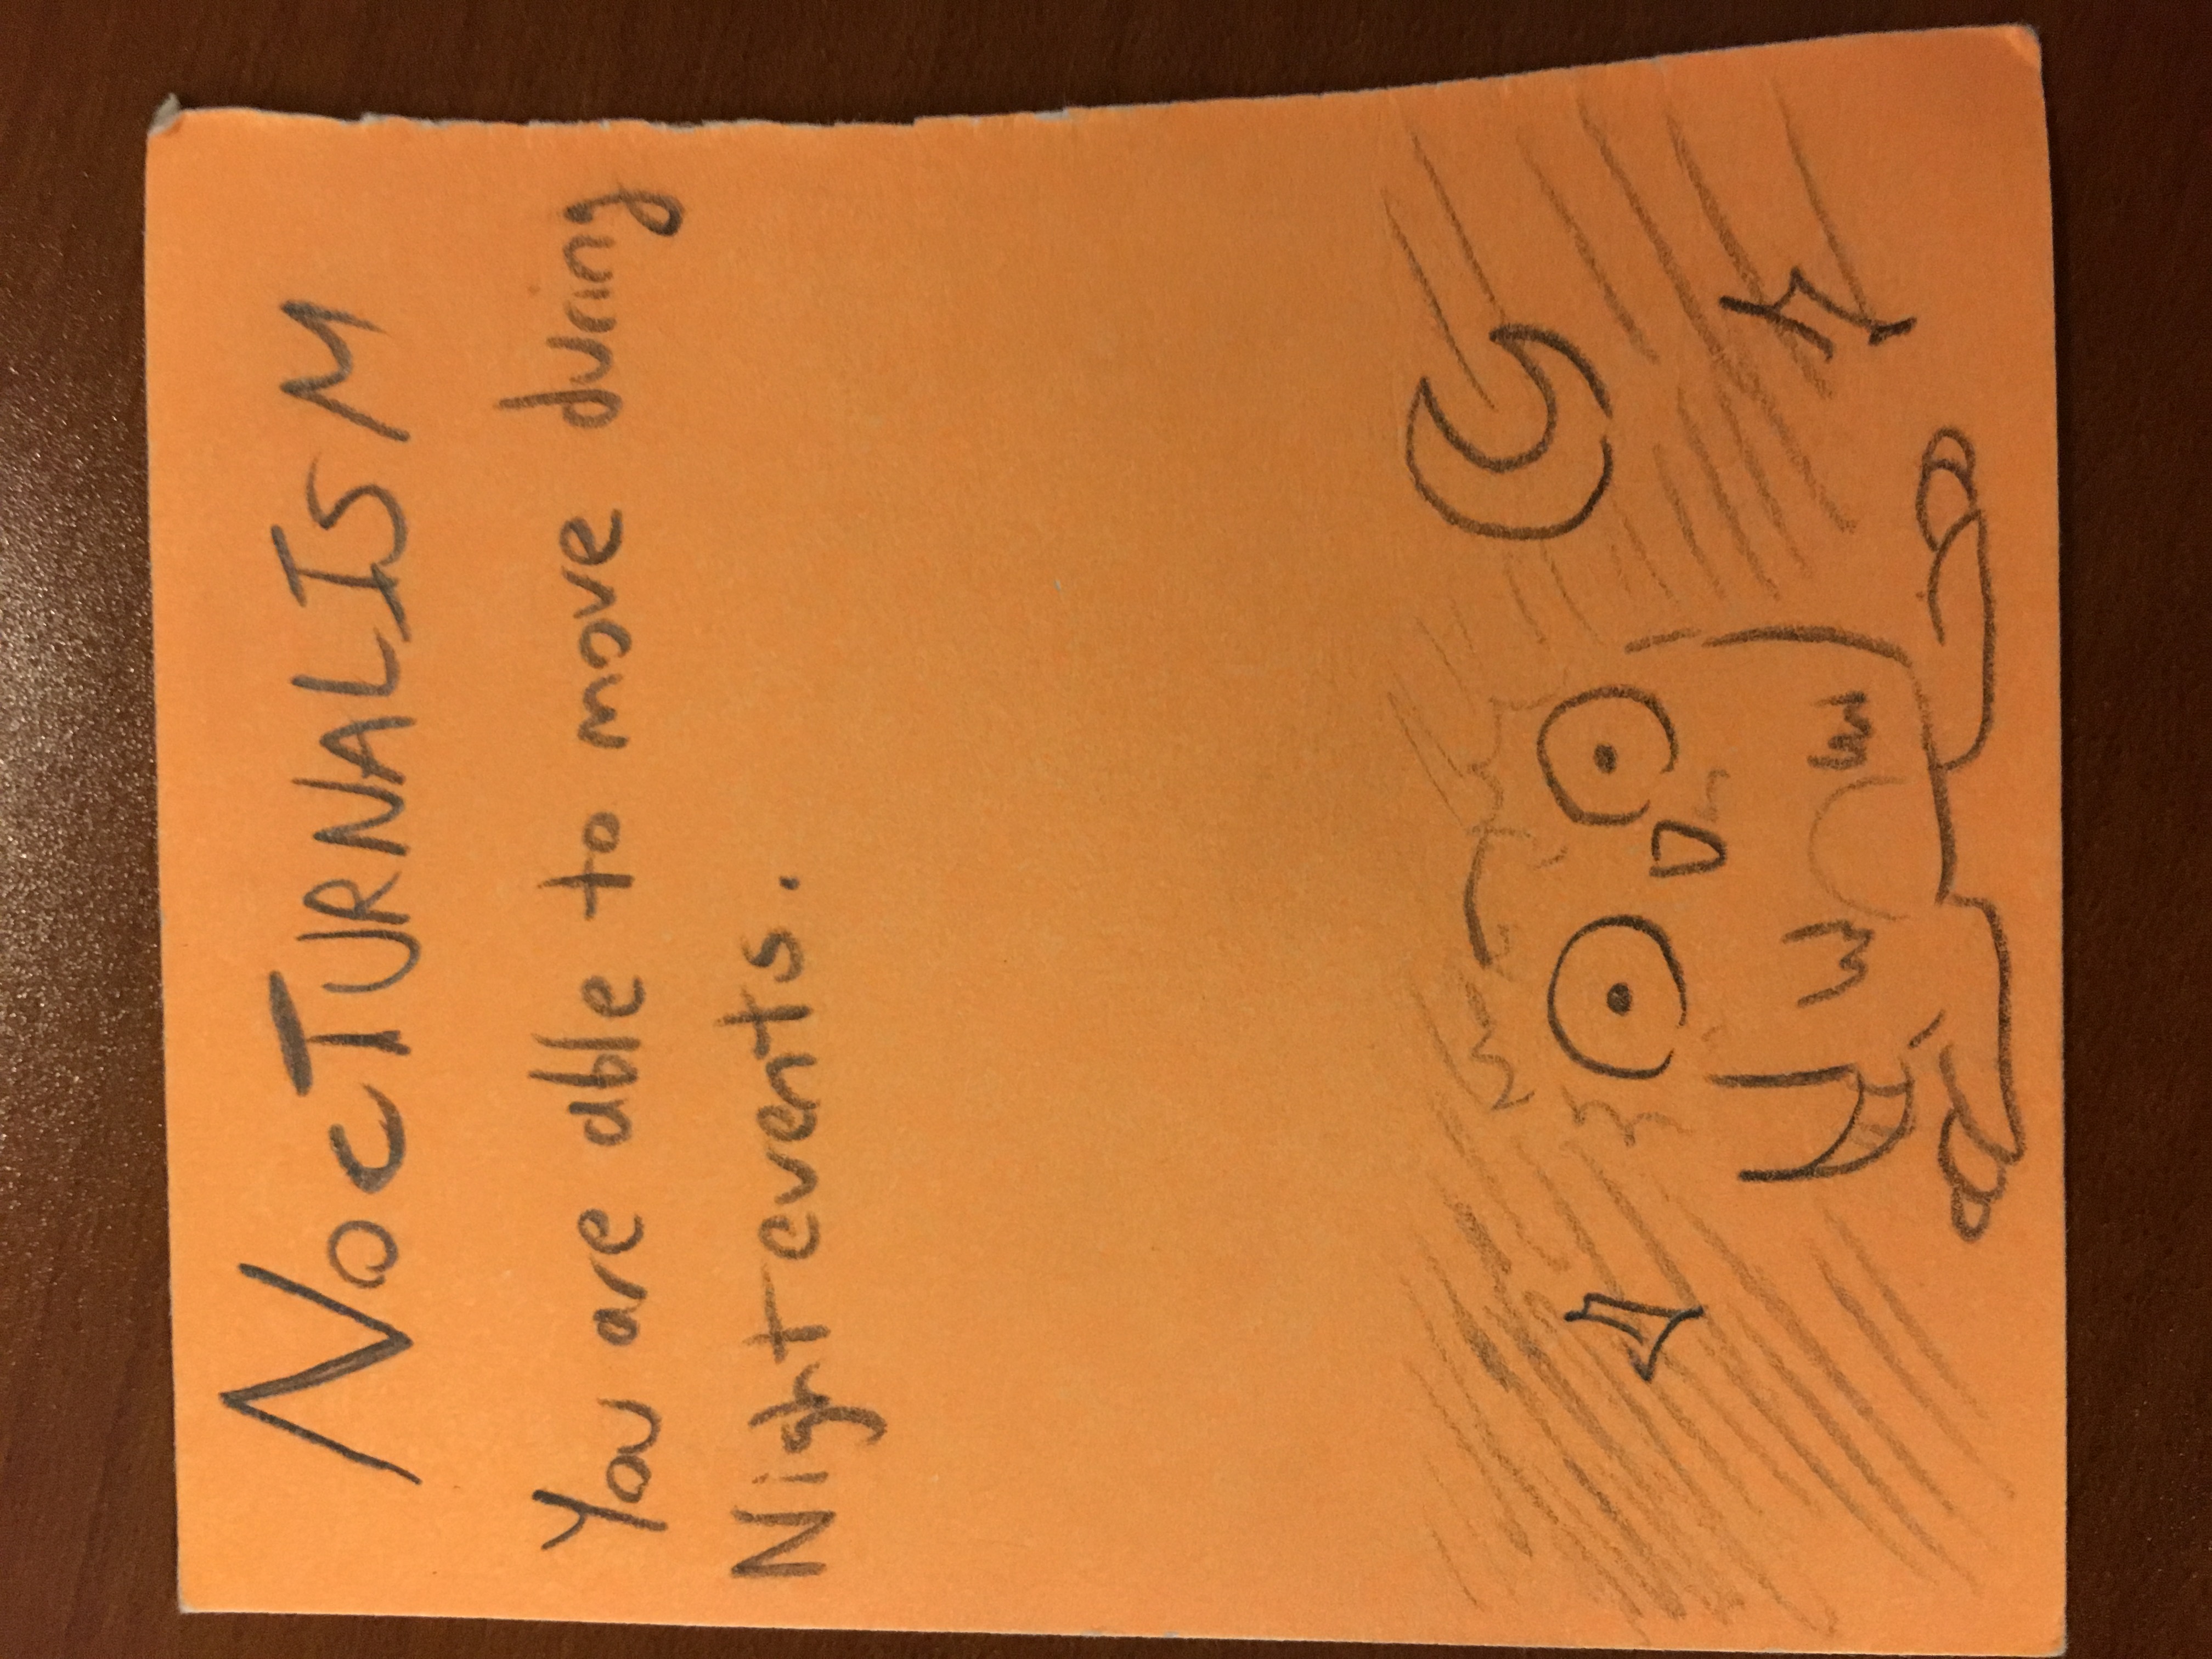 NOCTURNALISM
You are able to move during
Night events.